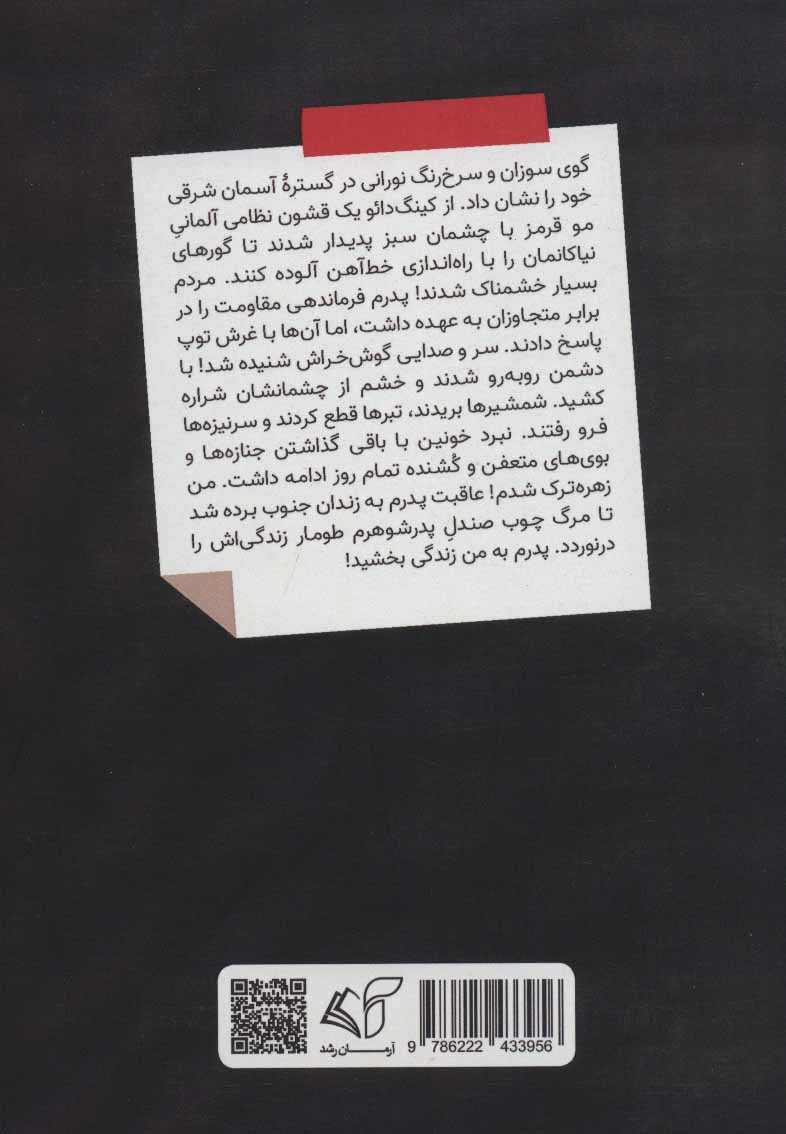 گوی سوزان و سرخ‌رنگ نورانی در گسترهٔ آسمان شرقی
خود را نشان داد. از کینگ‌دائو یک قشون نظامی آلمانیِ
مو قرمز با چشمان سبز پدیدار شدند تا گورهای
نیاکانمان را با راه‌اندازی خط‌آهن آلوده کنند. مردم
بسیار خشمناک شدند! پدرم فرماندهی مقاومت را در
برابر متجاوزان به عهده داشت، اما آن‌ها با غرش توپ
پاسخ دادند. سر و صدایی گوش‌خراش شنیده شد! با
دشمن روبه‌رو شدند و خشم از چشمانشان شراره
کشید. شمشیرها بریدند، تبرها قطع کردند و سرنیزه‌ها
فرو رفتند. نبرد خونین با باقی گذاشتن جنازه‌ها و
بوی‌های متعفن و کُشنده تمام روز ادامه داشت. من
زهره‌ترک شدم! عاقبت پدرم به زندان جنوب برده شد
تا مرگ چوب صندلِ پدرشوهرم طومار زندگی‌اش را
درنوردد. پدرم به من زندگی بخشید!
آرمـان رشد
9 786222 433956